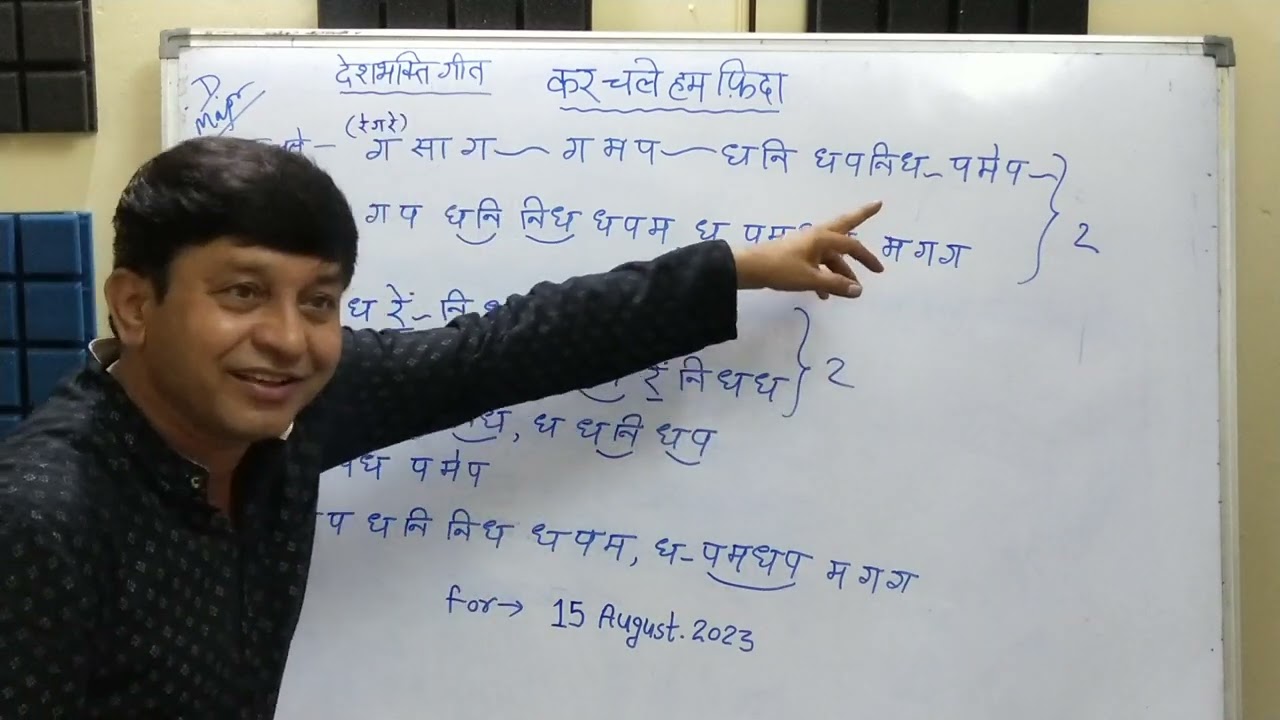 देशभक्ति गीत कर चले हम फ़िदा
D major
(रे ग रे)
ग सा ग ~ ग म प ~ ध नि ध प नि ध - प मे प ~ } 2
ग प ध नि नि ध ध प म ध प म म ग ग
ध रें ~ नि
रें नि ध ध } 2
ध, ध ध नि ध प
ध प मे प
प ध नि नि ध ध प म, ध - प म ध प म ग ग
for → 15 August. 2023